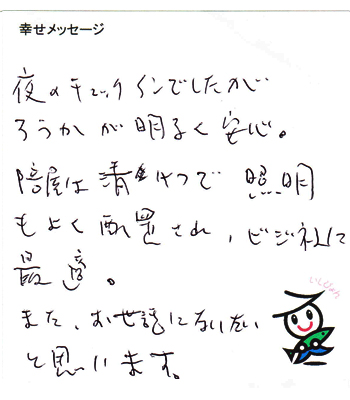 幸せメッセージ
夜のチェックインでしたが
ろうかが明るく安心。
部屋は清けつで照明
もよく配置され、ビジネスに
最適。
また、お世話になりたい
と思います。